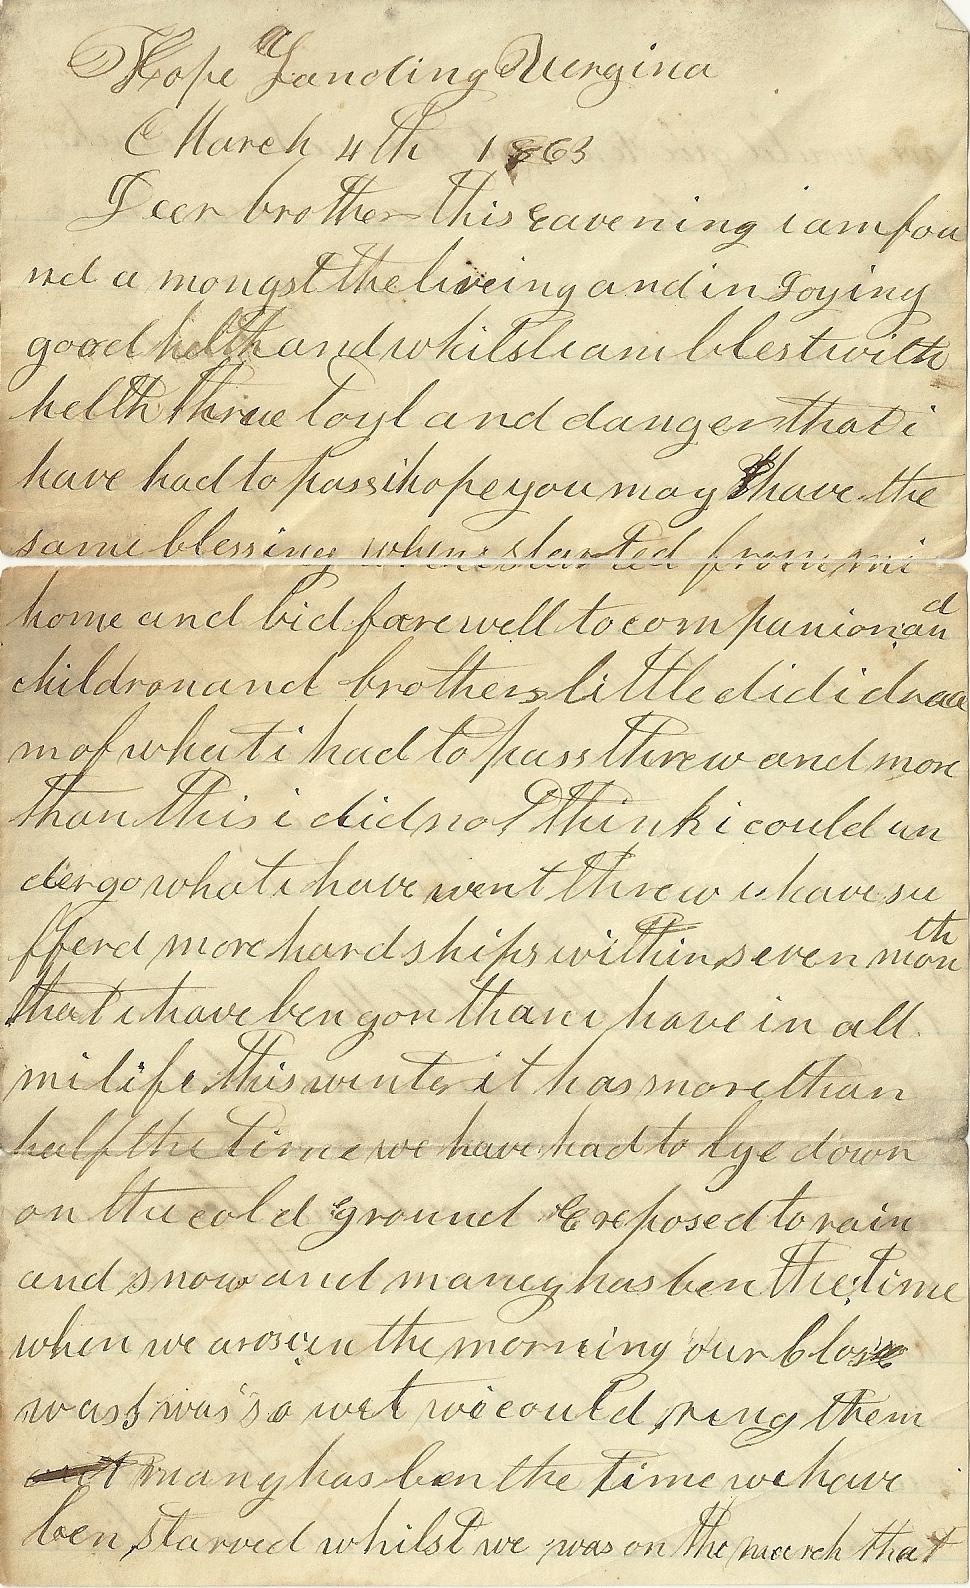 Hope Landing Vergina
March 4th 1863
Deer brother this eavening i am fou
nd a mongst the liveing and in Joying
good helth and whilst i am blest with
helth thrue toyl and danger that i
have had to pass i hope you may have the
same blessing when i started from mi
home and bid farewell to companion and
childron and brothers little did i drea
m of what i had to pass threw and more
than this i did not think i could un
dergo what i have went threw i have su
fferd more hardships within seven month
that i have ben gon than i have in all
mi life this winter it has more than
half the time we have had to lye down
on the cold ground Exeposed to rain
and snow and maney has ben the time
when we arose in the morning our
was so wet we could ring them
many has ben the time we have
ben starved whilst we was on the march that